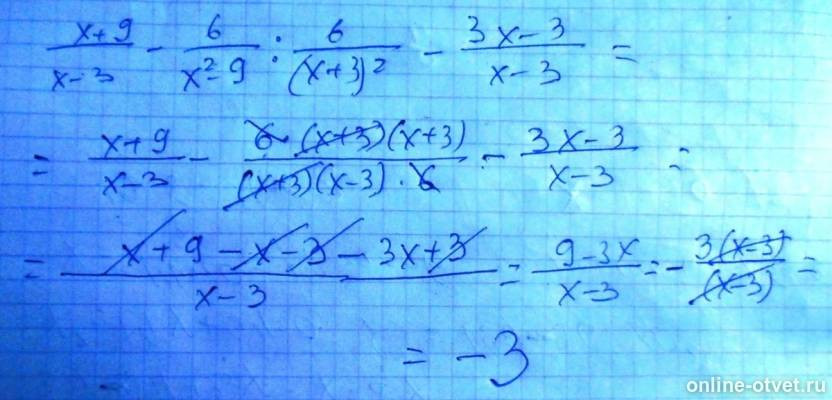 (x+9)/(x-3) - 6/(x²-9) : 6/(x+3)² - (3x-3)/(x-3) =
= (x+9)/(x-3) - (6(x+3)(x+3))/((x+3)(x-3)·6) - (3x-3)/(x-3) =
= (x+9-x-3-3x+3)/(x-3) = (9-3x)/(x-3) = - 3(x-3)/(x-3) =
= -3
online-otvet.ru